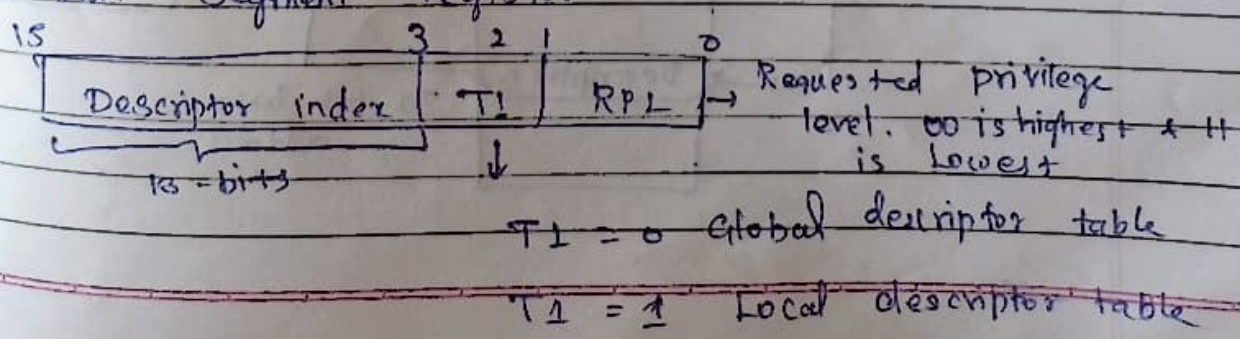 Segment
15 3 2 1 0
Descriptor index T1 RPL → Requested privilege
level. 00 is highest & 11
is Lowest
13 - bits
T1 = 0 Global descriptor table
T1 = 1 Local descriptor table